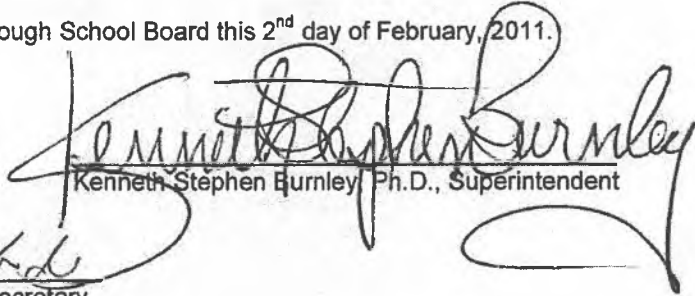 ough School Board this 2nd day of February, 2011.
Kenneth Stephen Burnley
Kenneth Stephen Burnley, Ph.D., Superintendent
secretary